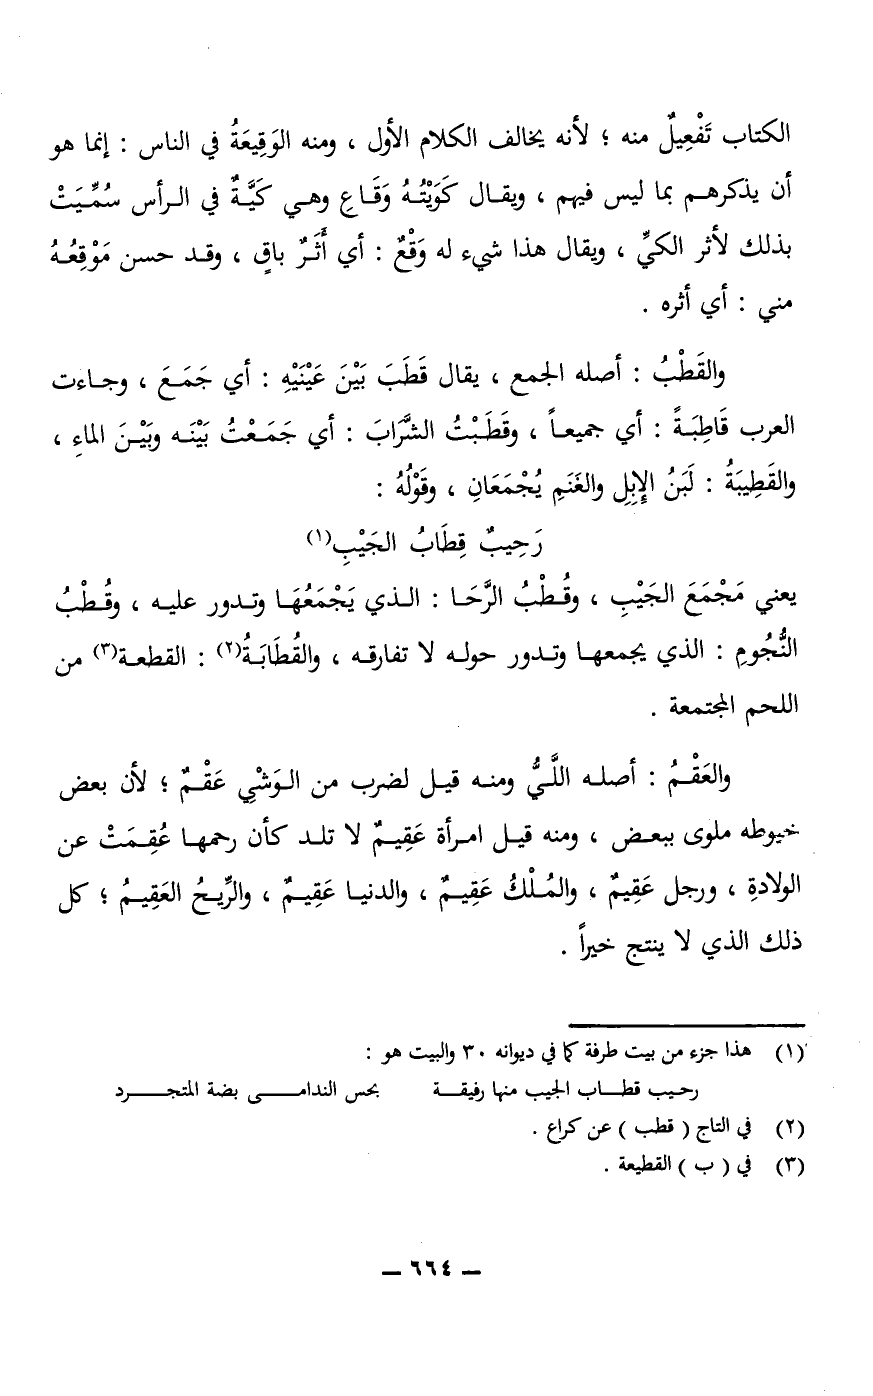 الكتاب تَفْعِيلٌ منه ؛ لأنه يخالف الكلام الأول ، ومنه الوَقِيعَةُ في الناس : إنما هو
أن يذكرهم بما ليس فيهم ، ويقال كَوَيْتُهُ وَقَاعِ وهي كَيَّةٌ في الرأس سُمِّيَتْ
بذلك لأثر الكيِّ ، ويقال هذا شيء له وَقْعٌ : أي أَثَرٌ باقٍ ، وقد حسن مَوْقِعُهُ
مني : أي أثره .
والقَطْبُ : أصله الجمع ، يقال قَطَبَ بَيْنَ عَيْنَيْهِ : أي جَمَعَ ، وجاءت
العرب قَاطِبَةً : أي جميعاً ، وقَطَبْتُ الشَّرَابَ : أي جَمَعْتُ بَيْنَه وبَيْنَ الماءِ ،
والقَطِيبَةُ : لَبَنُ الإِبِلِ والغَنَمِ يُجْمَعَانِ ، وقَوْلُهُ :
رَحِيبٌ قِطَابُ الجَيْبِ(١)
يعني مَجْمَعَ الجَيْبِ ، وقُطْبُ الرَّحَا : الذي يَجْمَعُهَا وتدور عليه ، وقُطْبُ
النُّجُومِ : الذي يجمعها وتدور حوله لا تفارقه ، والقُطَابَةُ(٢) : القطعة(٣) من
اللحم المجتمعة .
والعَقْمُ : أصله اللَّيُّ ومنه قيل لضرب من الوَشْيِ عَقْمٌ ؛ لأن بعض
خيوطه ملوى ببعض ، ومنه قيل امرأة عَقِيمٌ لا تلد كأن رحمها عُقِمَتْ عن
الولادةِ ، ورجل عَقِيمٌ ، والمُلْكُ عَقِيمٌ ، والدنيا عَقِيمٌ ، والرِّيحُ العَقِيمُ ؛ كل
ذلك الذي لا ينتج خيراً .
(١) هذا جزء من بيت طرفة كما في ديوانه ٣٠ والبيت هو :
رحيب قطاب الجيب منها رفيقة بحس الندامى بضة المتجرد
(٢) في التاج ( قطب ) عن كراع .
(٣) في ( ب ) القطيعة .
— ٦٦٤ —